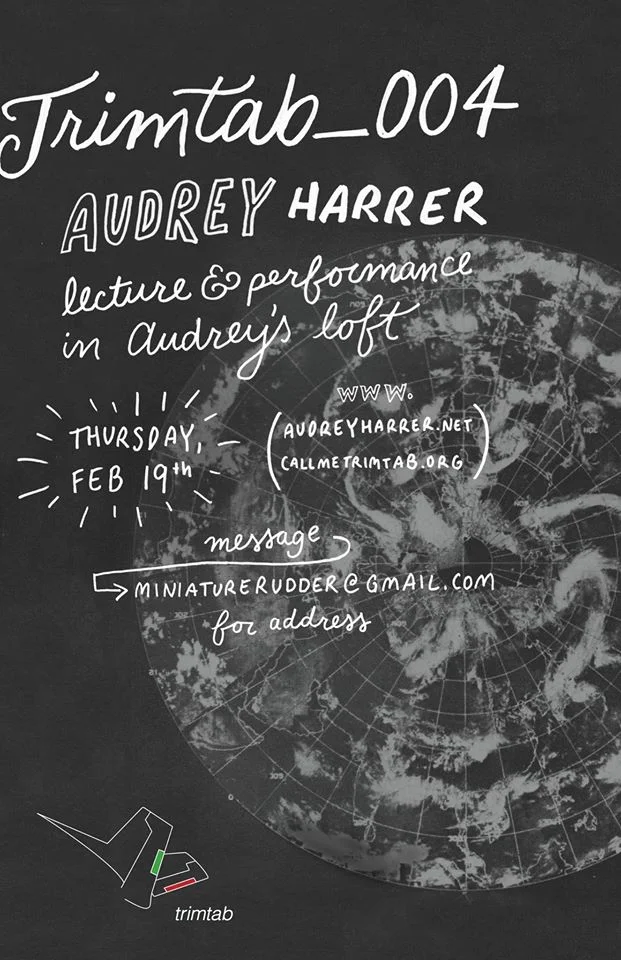 Trimtab_004
AUDREY HARRER
lecture & performance
in Audrey's loft
THURSDAY,
FEB 19th
www.
(AUDREYHARRER.NET
CALLMETRIMTAB.ORG)
message
MINIATURERUDDER@GMAIL.COM
for address
trimtab